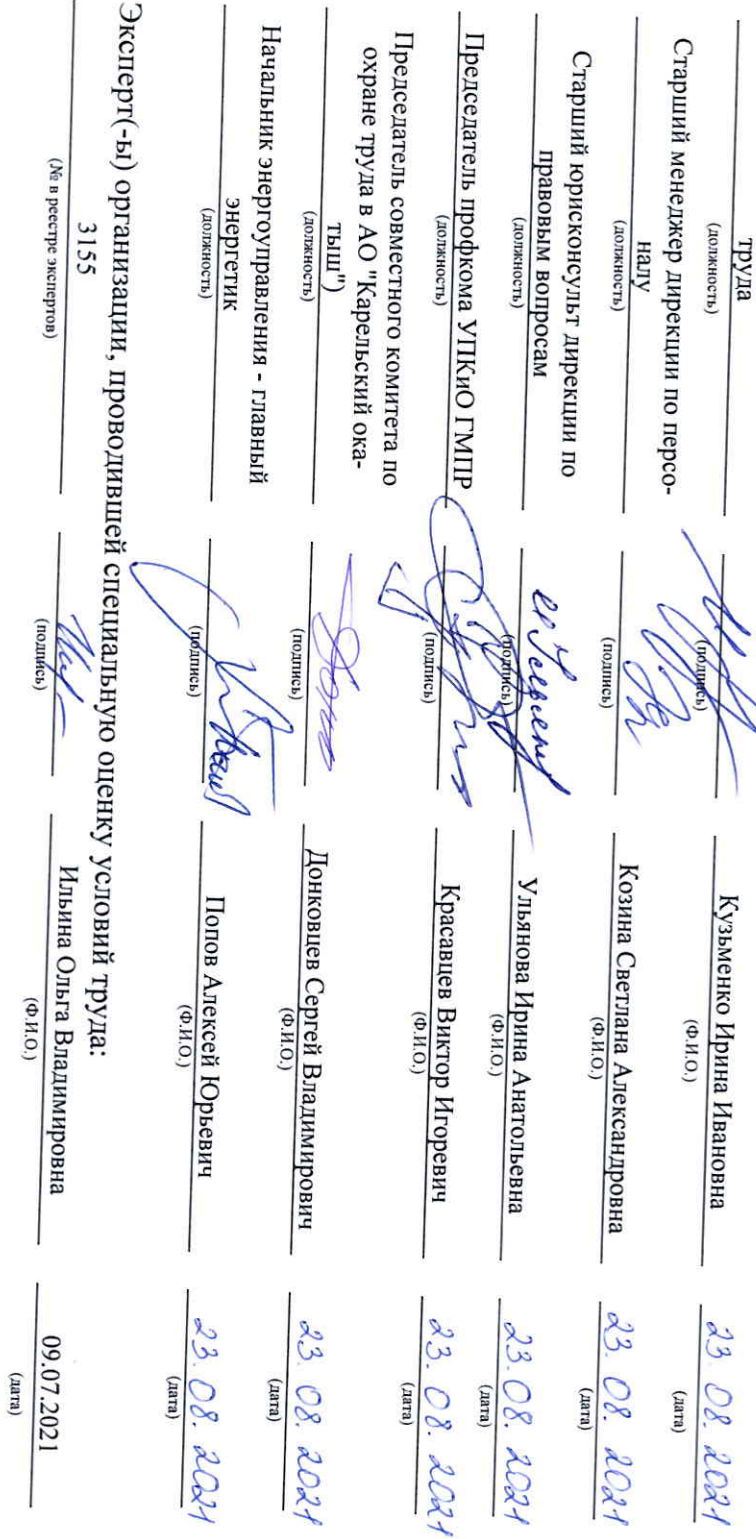 труда
(должность) (подпись) Кузьменко Ирина Ивановна (Ф.И.О.) 23.08.2021 (дата)
Старший менеджер дирекции по персо-
налу
(должность) (подпись) Козина Светлана Александровна (Ф.И.О.) 23.08.2021 (дата)
Старший юрисконсульт дирекции по
правовым вопросам
(должность) (подпись) Ульянова Ирина Анатольевна (Ф.И.О.) 23.08.2021 (дата)
Председатель профкома УПКиО ГМПР
(должность) (подпись) Красавцев Виктор Игоревич (Ф.И.О.) 23.08.2021 (дата)
Председатель совместного комитета по
охране труда в АО "Карельский ока-
тыш")
(должность) (подпись) Донковцев Сергей Владимирович (Ф.И.О.) 23.08.2021 (дата)
Начальник энергоуправления - главный
энергетик
(должность) (подпись) Попов Алексей Юрьевич (Ф.И.О.) 23.08.2021 (дата)
Эксперт(-ы) организации, проводившей специальную оценку условий труда:
3155 Ильина Ольга Владимировна 09.07.2021
(№ в реестре экспертов) (подпись) (Ф.И.О.) (дата)